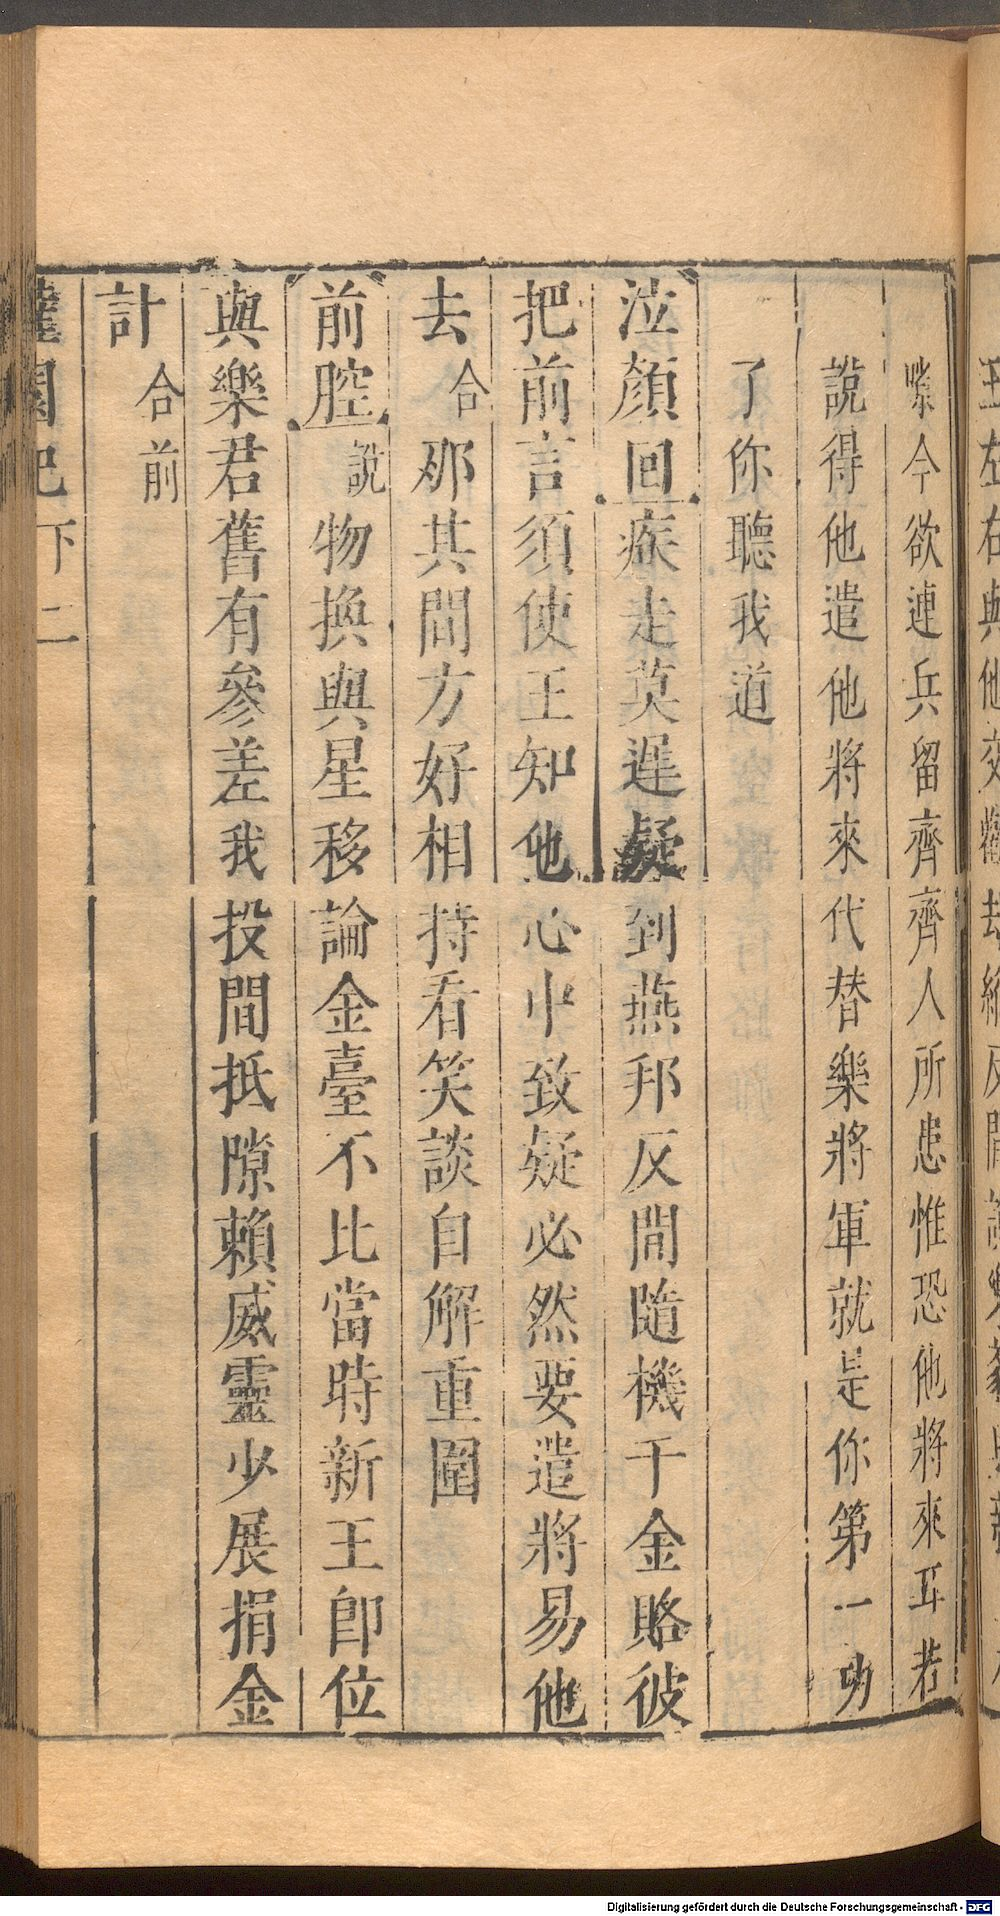 喙今欲連兵留齊齊人所患惟恐他將來耳若
說得他遣他將來代替樂將軍就是你第一功
了你聽我道
泣顏回疾走莫遲疑到燕邦反間隨機千金賂彼
把前言須使王知他心中致疑必然要遣將易他
去合那其間方好相持看笑談自解重圍
前腔說物換與星移論金臺不比當時新王卽位
與樂君舊有參差我投間抵隙賴威靈少展捐金
計合前
園記下二
Digitalisierung gefördert durch die Deutsche Forschungsgemeinschaft - DFG